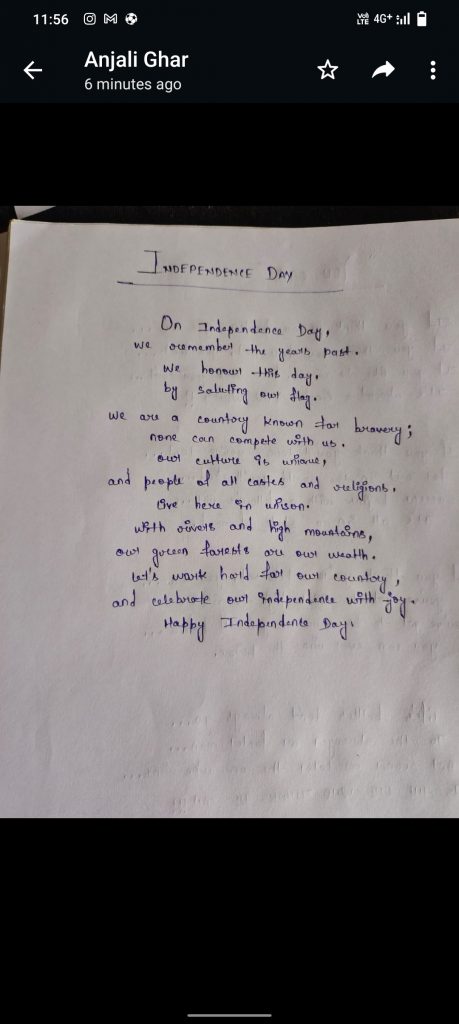 11:56 4G+
Vo) LTE
Anjali Ghar
6 minutes ago
INDEPENDENCE DAY
On Independence Day,
we remember the years past.
We honour this day.
by saluting our flag.
we are a country known for bravery;
none can compete with us.
our culture is unique,
and people of all castes and religions.
live here in unison.
with rivers and high mountains,
our green forests are our wealth.
Let's work hard for our country,
and celebrate our independence with joy.
Happy Independence Day.